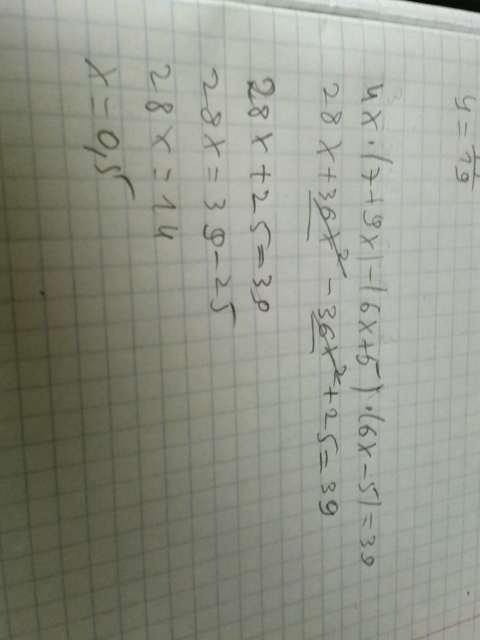 y = 1/19
4x·(7+9x)-(6x+5)·(6x-5)=39
28x+36x²-36x²+25=39
28x+25=39
28x=39-25
28x=14
x=0,5